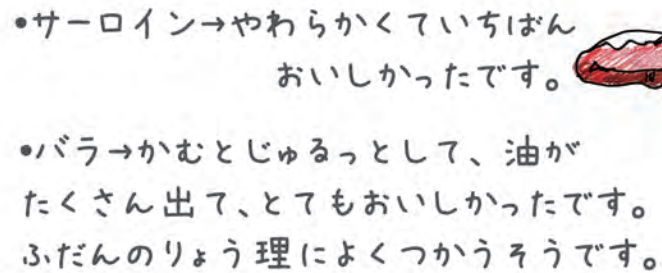 •サーロイン→やわらかくていちばん
おいしかったです。
•バラ→かむとじゅるっとして、油が
たくさん出て、とてもおいしかったです。
ふだんのりょう理によくつかうそうです。